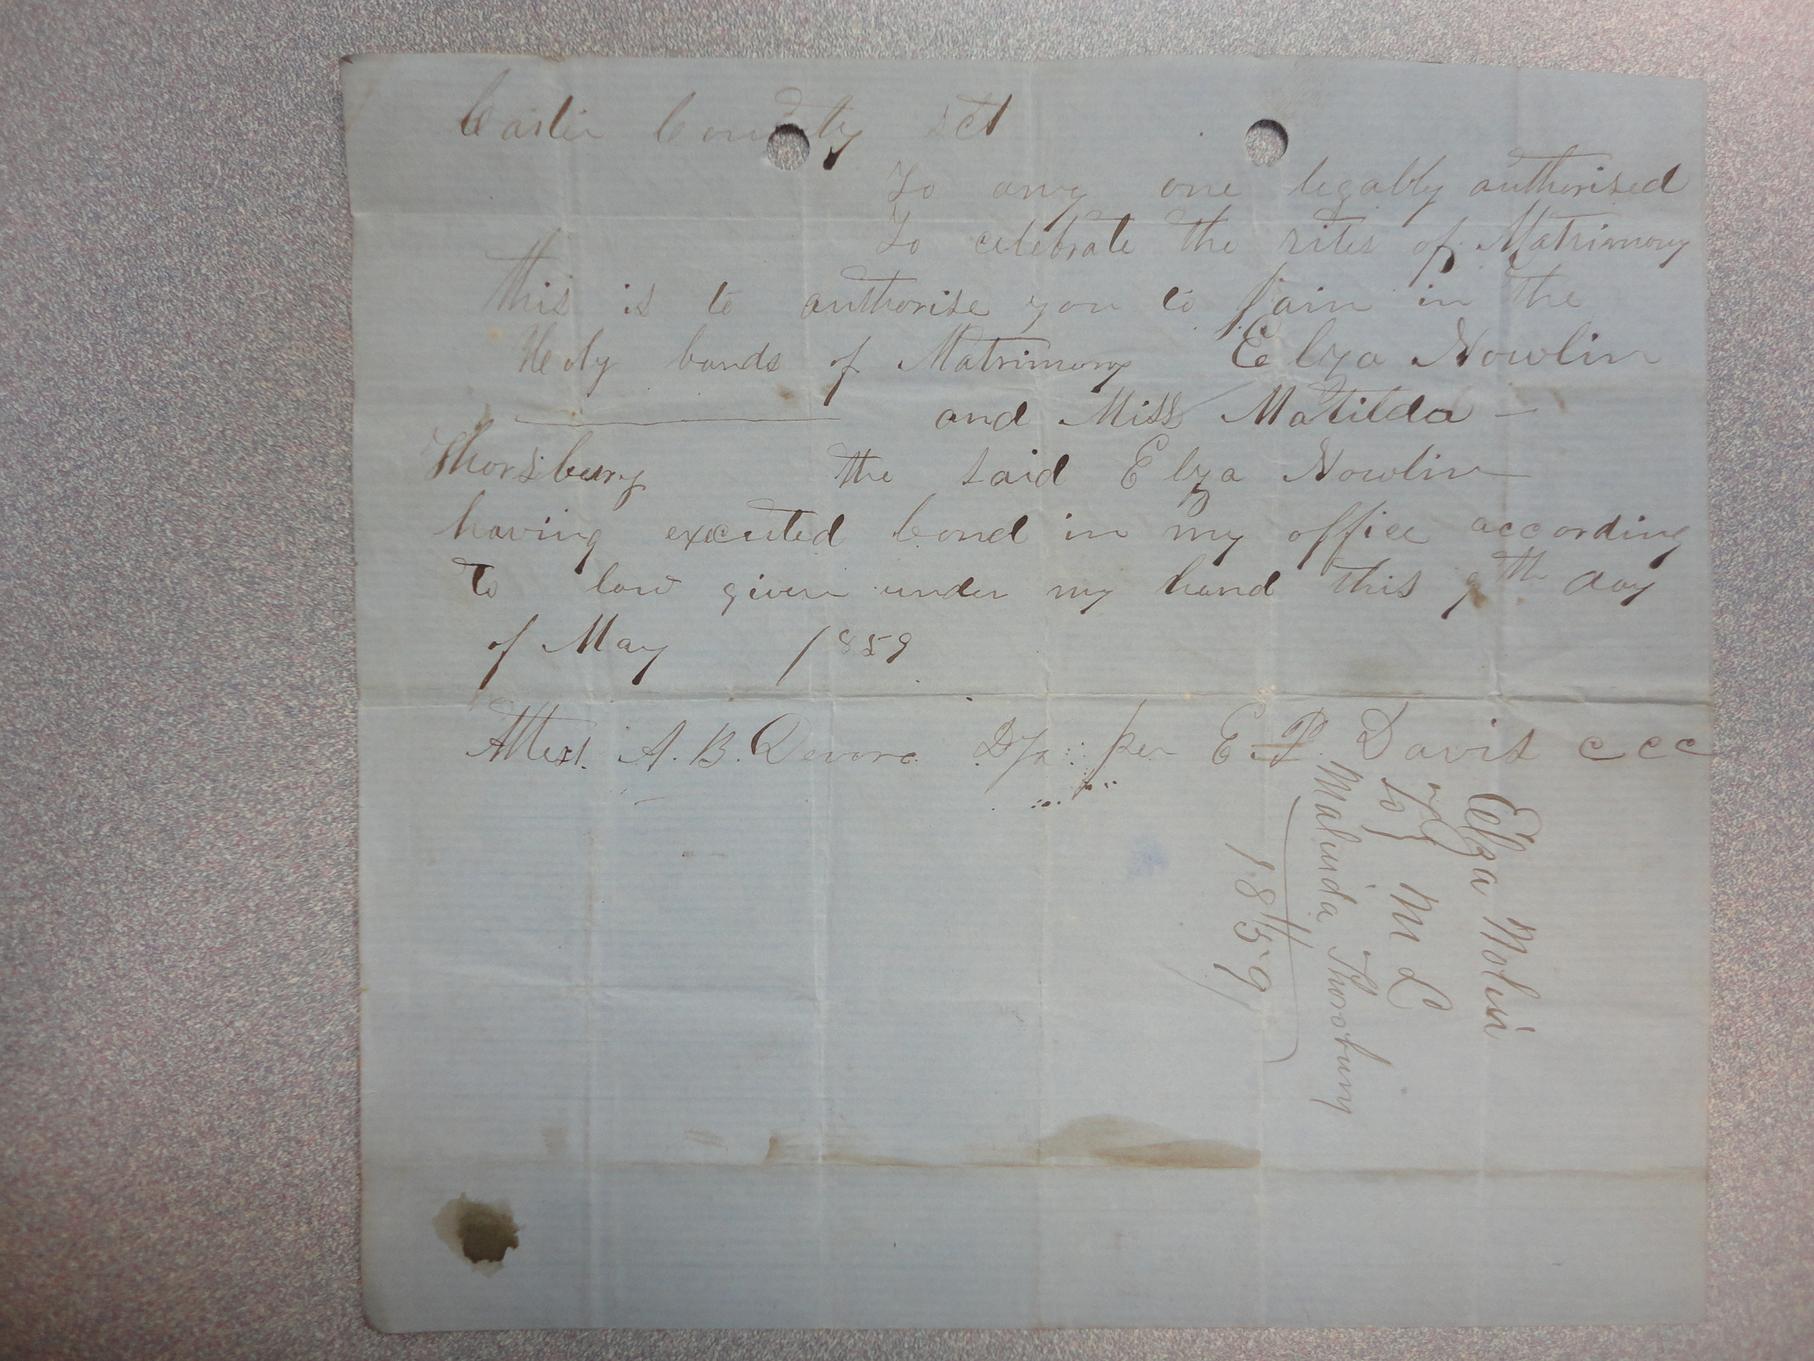 Carter County Sct
To any one legally authorised
To celebrate the rites of Matrimony
this is to authorise you to join in the
Holy bands of Matrimony Elza Nowlin
and Miss Matilda
Thorsbury the said Elza Nowlin
having excuted bond in my office according
to law given under my hand this 9th day
of May 1859
Attest. A. B. Devore per E. P. Davis C C C
Elza Nolin
To } M L
Malinda Thorobury
1859